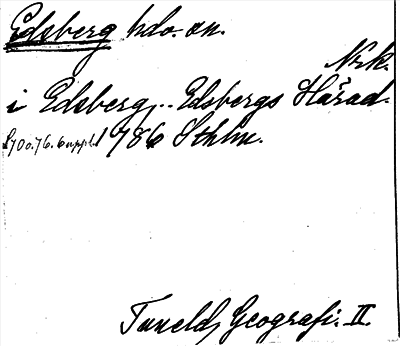 Edsberg hdo. sn.
Nrk.
i Edsberg, .. Edsbergs Härad.
1786 Sthlm.
Tuneld, Geografi. II.